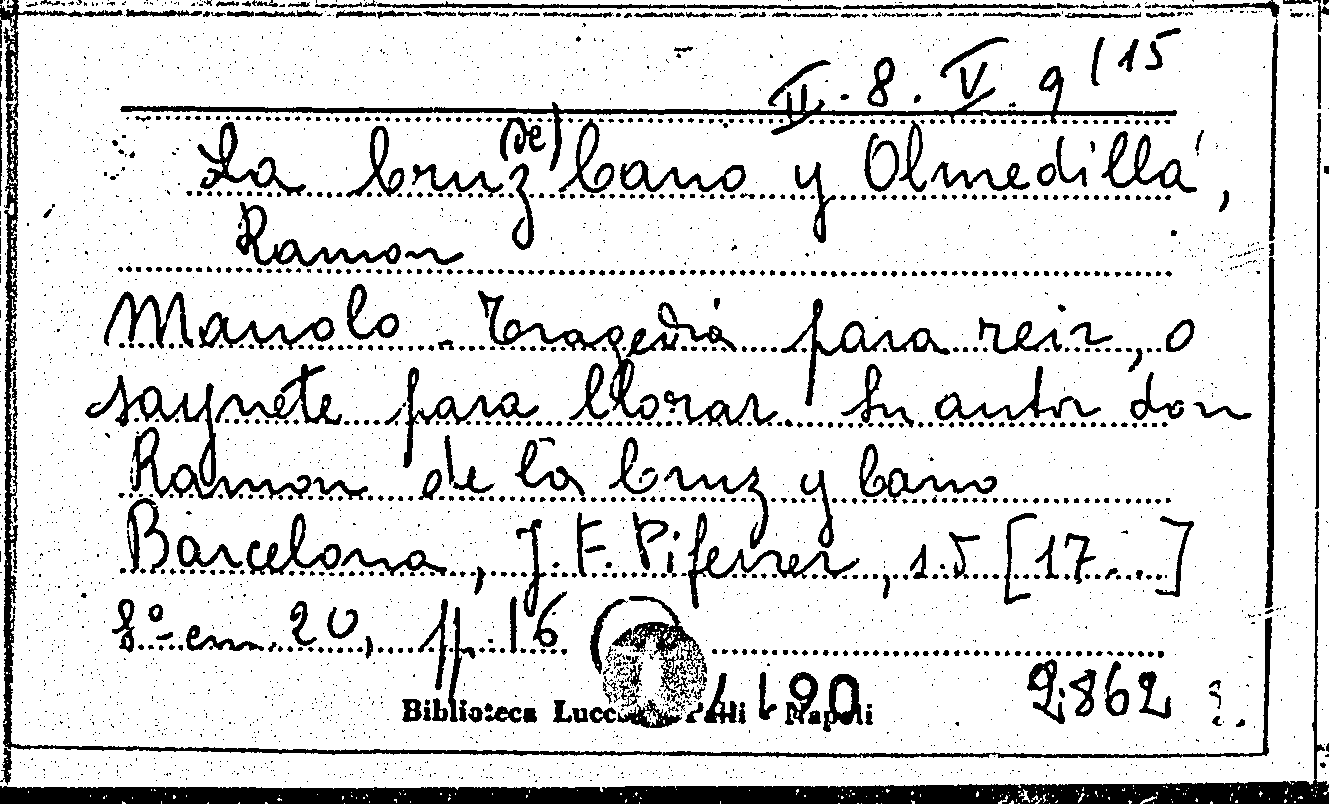 II. 8. V. 9 (15
La Cruz (de) Cano y Olmedilla,
Ramon
Manolo - Tragedia para reir, o
saynete para llorar. Su autor don
Ramon de la Cruz y Cano
Barcelona, J. F. Piferrer, s.d [17..]
8º cm. 20, pp. 16
2862
Biblioteca Lucchesi Palli Napoli